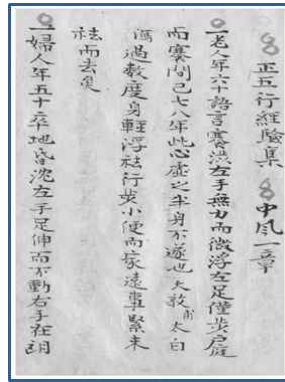 正五行經驗集 中風一章
一老人年六十語言蹇澁左手無力而微浮左足僅步戶庭
而蹇間已七八年此心虛之半身不遂也大敦 太白
瀉過數度身輕浮祛行步小便而家遠事緊未
祛而去矣
一婦人年五十卒地昏沈左手足伸而不動右手在胡